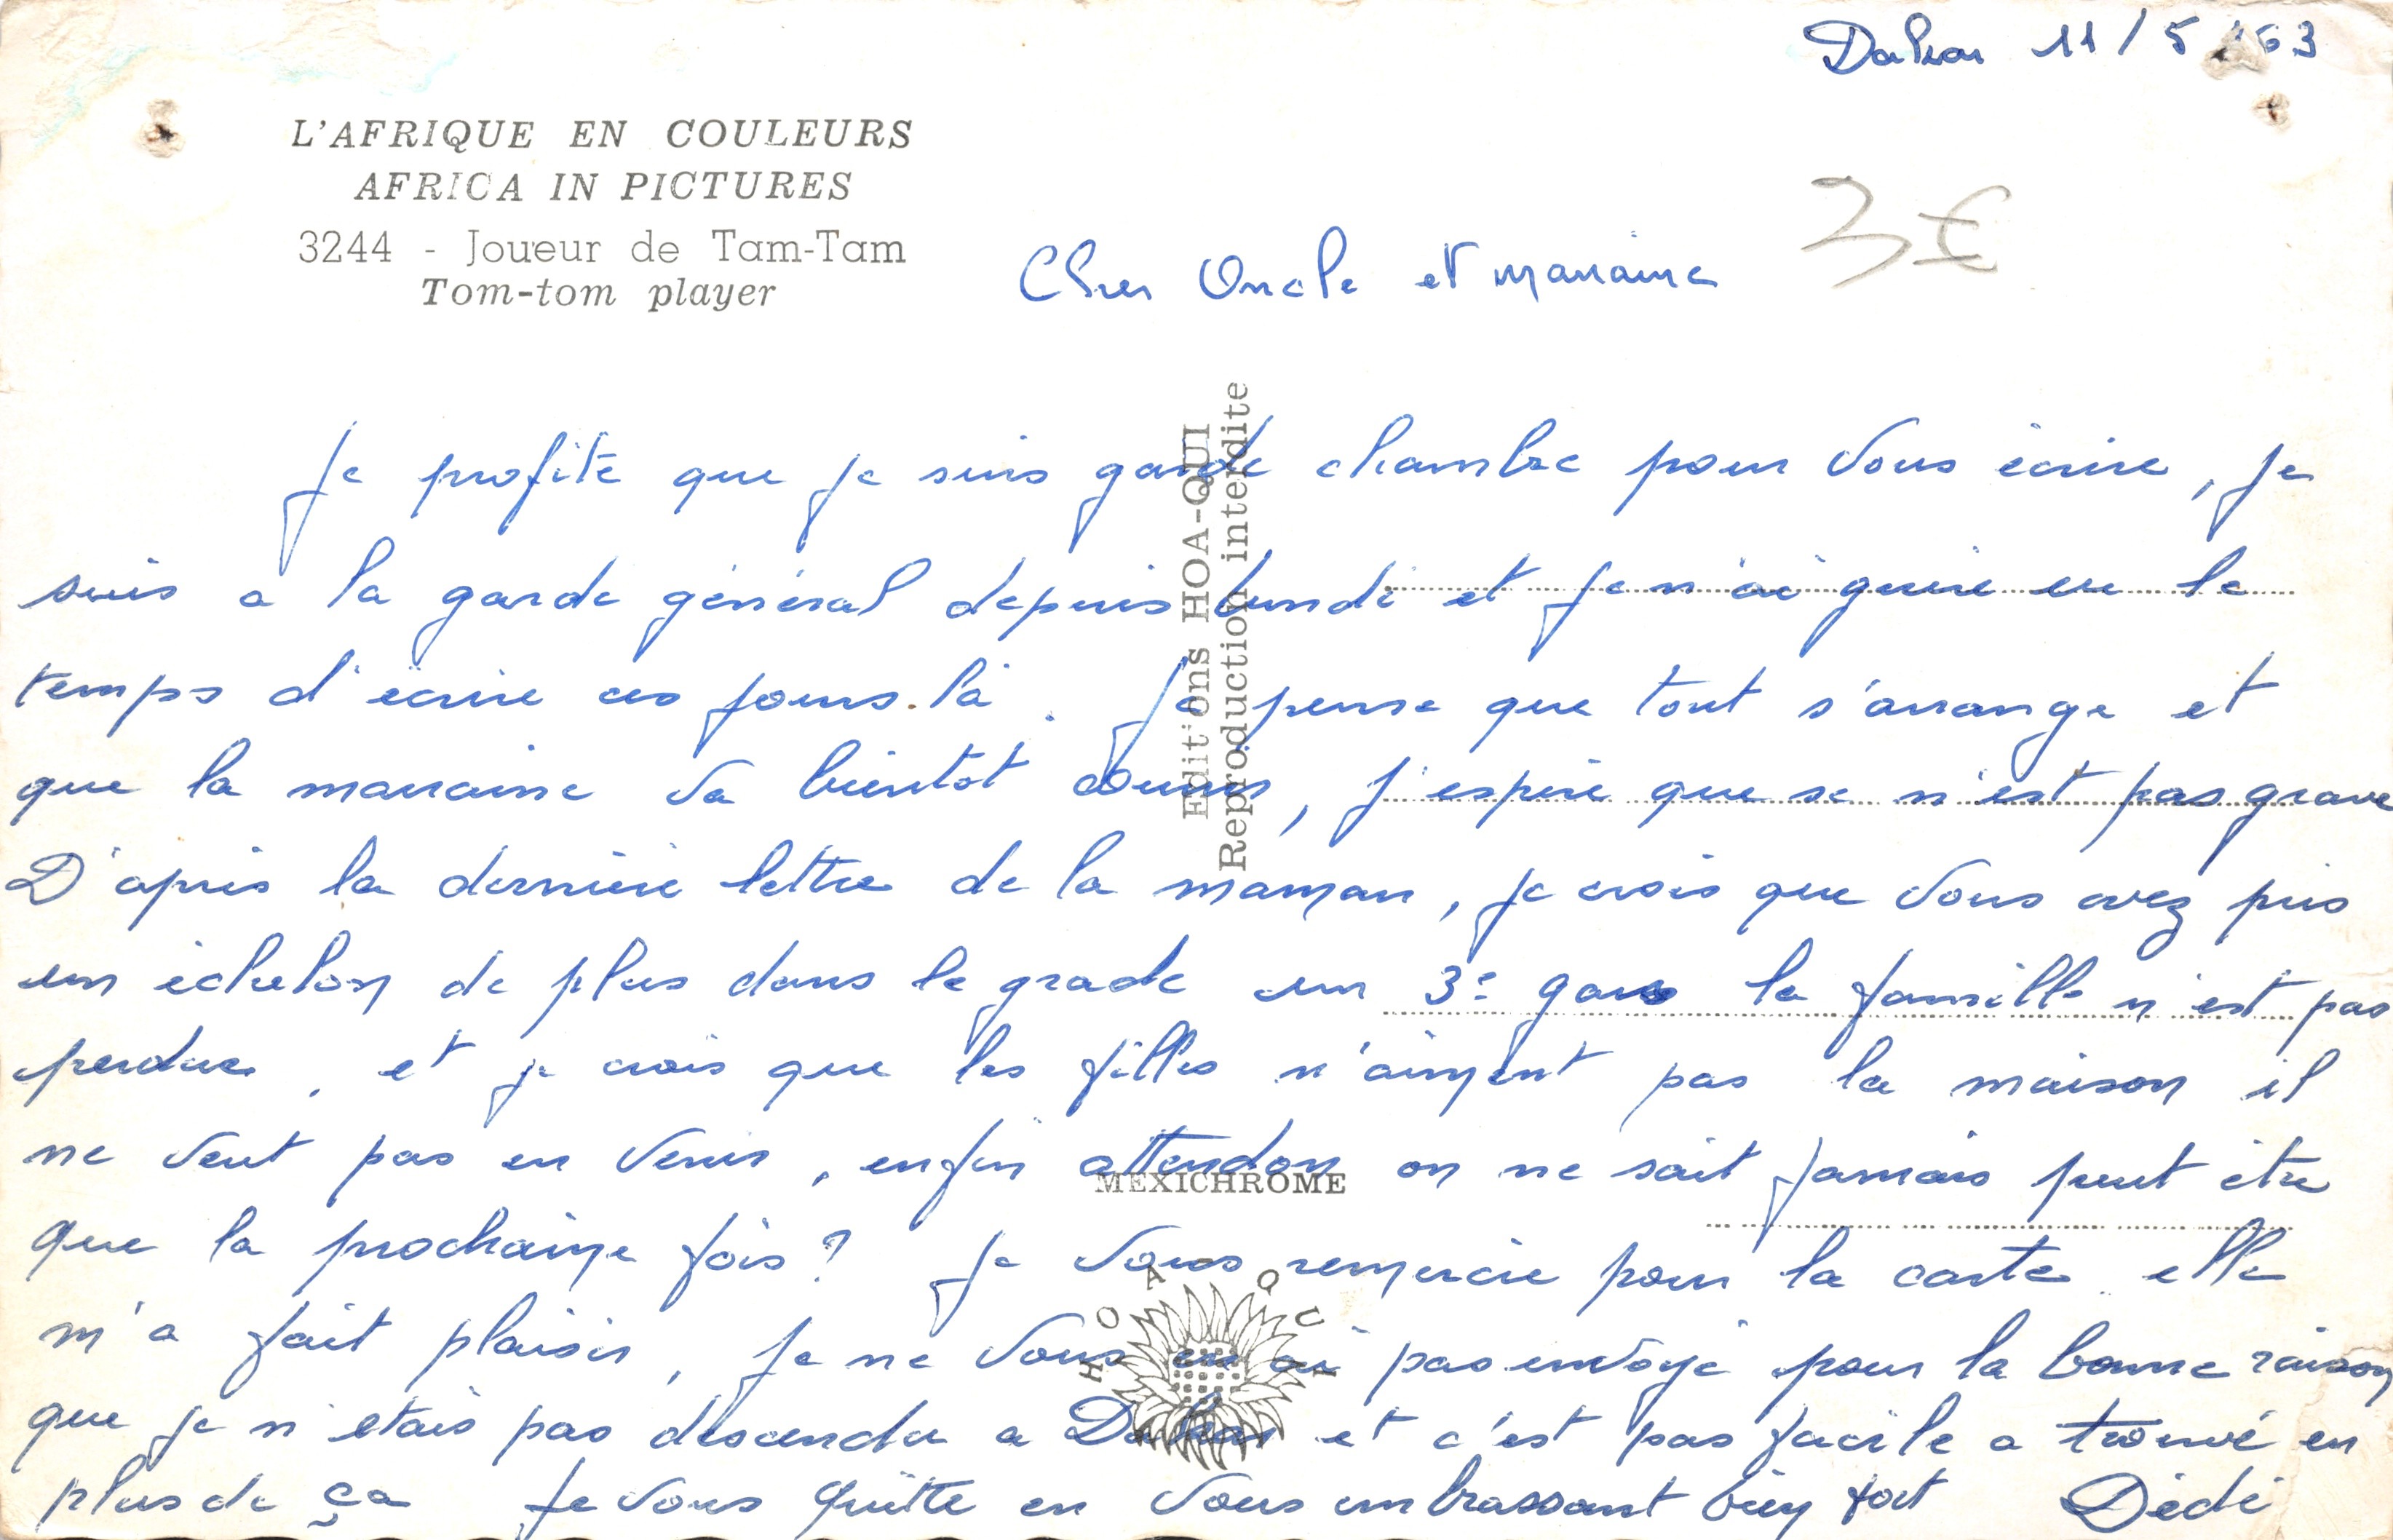 Dakar 11/5/63
L'AFRIQUE EN COULEURS
AFRICA IN PICTURES
3244 - Joueur de Tam-Tam
Tom-tom player
3€
Cher Oncle et marraine
Je profite que je suis garde chambre pour vous écrire, je
suis a la garde général depuis lundi et je n'ai guère eu le
temps d'écrire ces jours-là. Je pense que tout s'arrange et
que la marraine va bientôt courir, j'espère que se n'est pas grave
D'après la dernière lettre de la maman, je crois que vous avez pris
un échelon de plus dans le grade un 3e gars la famille n'est pas
perdue, et je crois que les filles n'aiment pas la maison il
ne veut pas en venir, enfin attendon on ne sait jamais peut être
que la prochaine fois? Je vous remercie pour la carte elle
m'a fait plaisir, je ne vous en ai pas envoyé pour la bonne raison
que je n'etais pas descendu a Dakar et c'est pas facile a trouvé en
plus de ça Je vous quitte en vous embrassant bien fort Dédé
Editions HOA-QUI
Reproduction interdite
MEXICHROME
HOA QUI